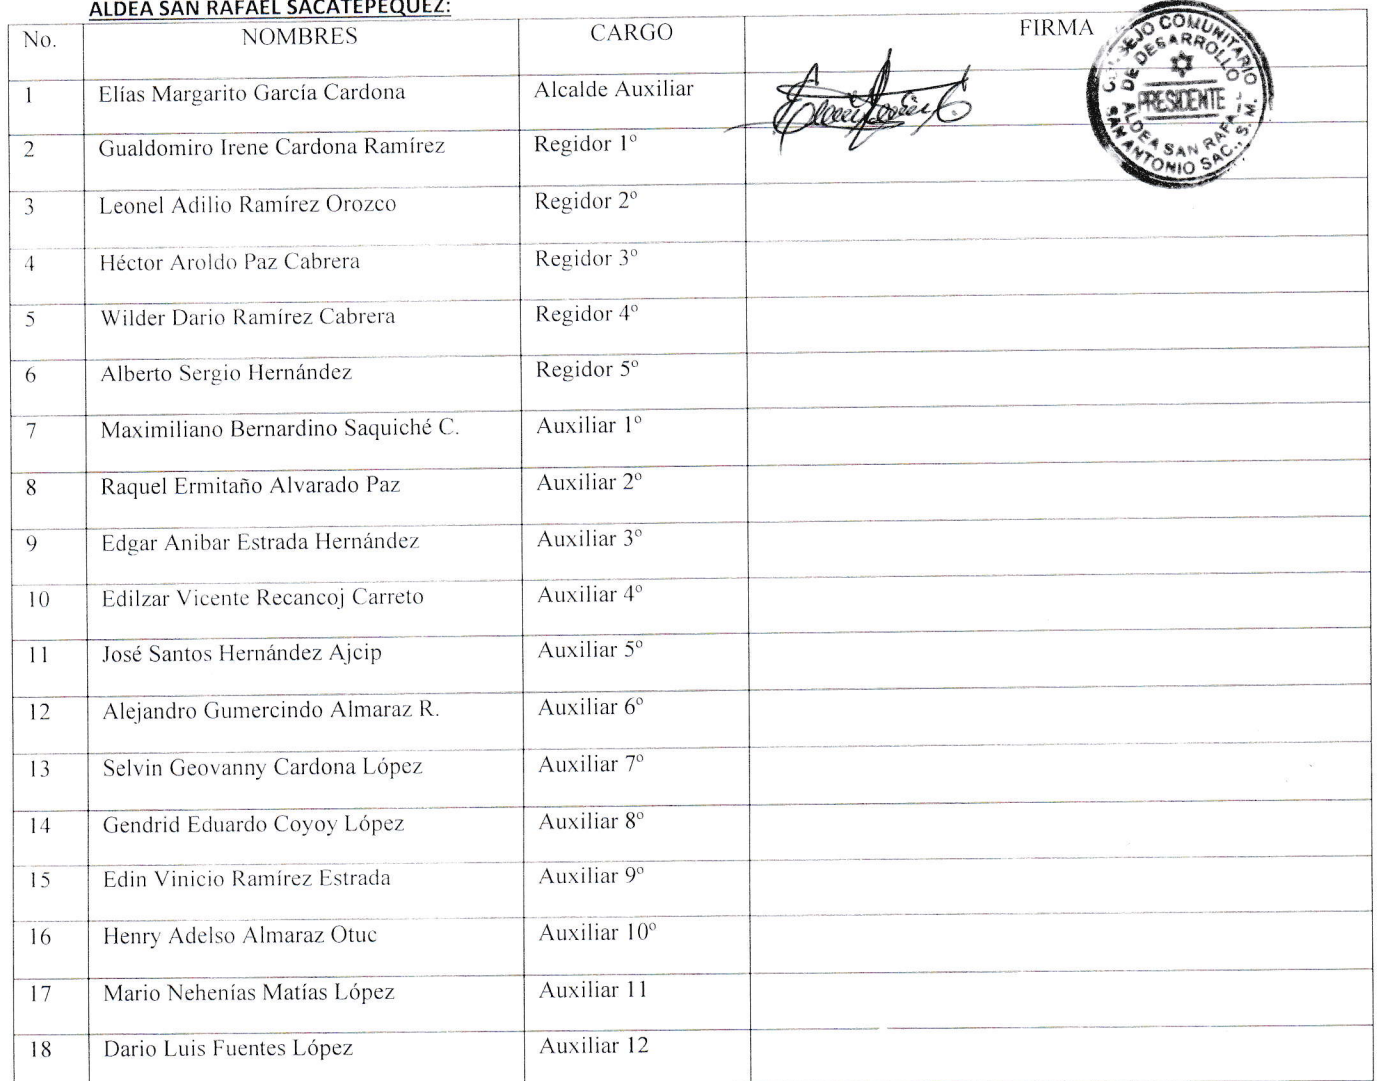 ALDEA SAN RAFAEL SACATEPEQUEZ:
No. NOMBRES CARGO FIRMA
1 Elías Margarito García Cardona Alcalde Auxiliar
2 Gualdomiro Irene Cardona Ramírez Regidor 1º
3 Leonel Adilio Ramírez Orozco Regidor 2º
4 Héctor Aroldo Paz Cabrera Regidor 3º
5 Wilder Dario Ramírez Cabrera Regidor 4º
6 Alberto Sergio Hernández Regidor 5º
7 Maximiliano Bernardino Saquiché C. Auxiliar 1º
8 Raquel Ermitaño Alvarado Paz Auxiliar 2º
9 Edgar Anibar Estrada Hernández Auxiliar 3º
10 Edilzar Vicente Recancoj Carreto Auxiliar 4º
11 José Santos Hernández Ajcip Auxiliar 5º
12 Alejandro Gumercindo Almaraz R. Auxiliar 6º
13 Selvin Geovanny Cardona López Auxiliar 7º
14 Gendrid Eduardo Coyoy López Auxiliar 8º
15 Edin Vinicio Ramírez Estrada Auxiliar 9º
16 Henry Adelso Almaraz Otuc Auxiliar 10º
17 Mario Nehenías Matías López Auxiliar 11
18 Dario Luis Fuentes López Auxiliar 12
COMUNITARIO
DE DESARROLLO
PRESIDENTE
ALDEA SAN
SAN ANTONIO SAC., S. M.